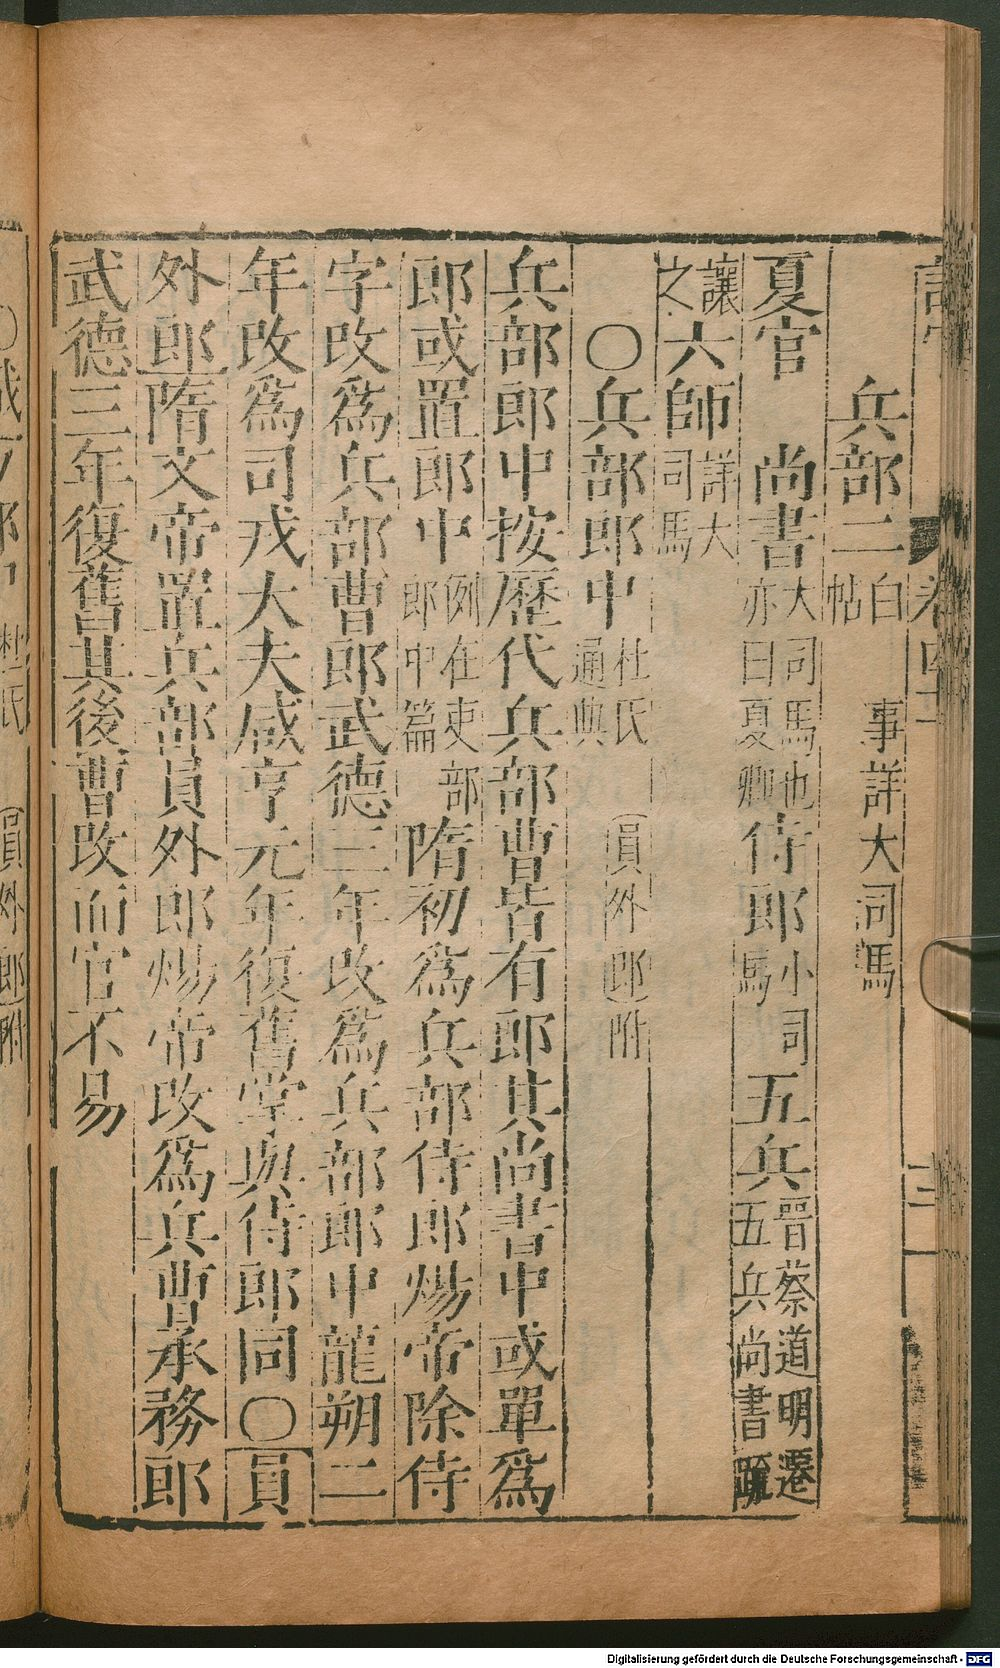 兵部二白帖 事詳大司馬
夏官 尚書大司馬也亦曰夏卿侍郎小司馬五兵晉蔡道明遷五兵尚書疏
讓之六師詳大司馬
〇兵部郎中杜氏通典 員外郎附
兵部郎中按歷代兵部曹皆有郎其尚書中或單爲
郎或置郎中例在吏部郎中篇隋初爲兵部侍郎煬帝除侍
字改爲兵部曹郎武德三年改爲兵部郎中龍朔二
年改爲司戎大夫咸亨元年復舊堂與侍郎同〇員
外郎隋文帝置兵部員外郎煬帝改爲兵曹承務郎
武德三年復舊其後曹改而官不易
Digitalisierung gefördert durch die Deutsche Forschungsgemeinschaft - DFG